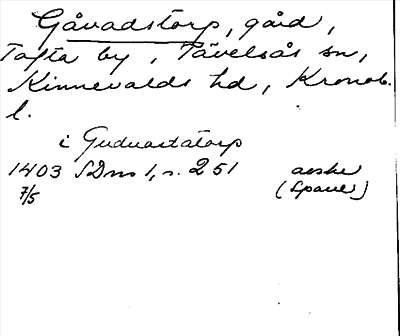 Gåvadstorp, gård,
Tofta by, Tävelsås sn,
Kinnevalds hd, Kronob.
l.
i Guduastatorp
1403 SDns 1, s. 251 avskr
7/5 (Spauer)